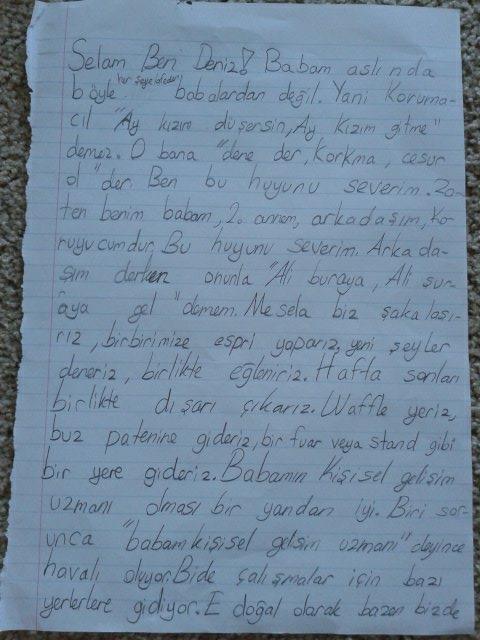 Selam Ben Deniz! Babam aslında
böyle "her şeye lafeder" babalardan değil. Yani Koruma-
cıl "Ay kızım düşersin, Ay kızım gitme"
demez. O bana "dene der, korkma, cesur
ol" der. Ben bu huyunu severim. Za-
ten benim babam, 2. annem, arkadaşım, ko-
ruyucumdur. Bu huyunu severim. Arkada-
şım derken onunla "Ali buraya, Ali şur-
aya gel" demem. Mesela biz şakalaşı-
rız, birbirimize espri yaparız, yeni şeyler
deneriz, birlikte eğleniriz. Hafta sonları
birlikte dışarı çıkarız. Waffle yeriz,
buz patenine gideriz, bir fuar veya stand gibi
bir yere gideriz. Babamın Kişisel gelişim
uzmanı olması bir yandan iyi. Biri sor-
unca "babam kişisel gelsin uzmanı" deyince
havalı oluyor. Bide çalışmalar için bazı
yerlerlere gidiyor. E doğal olarak bazen bizde